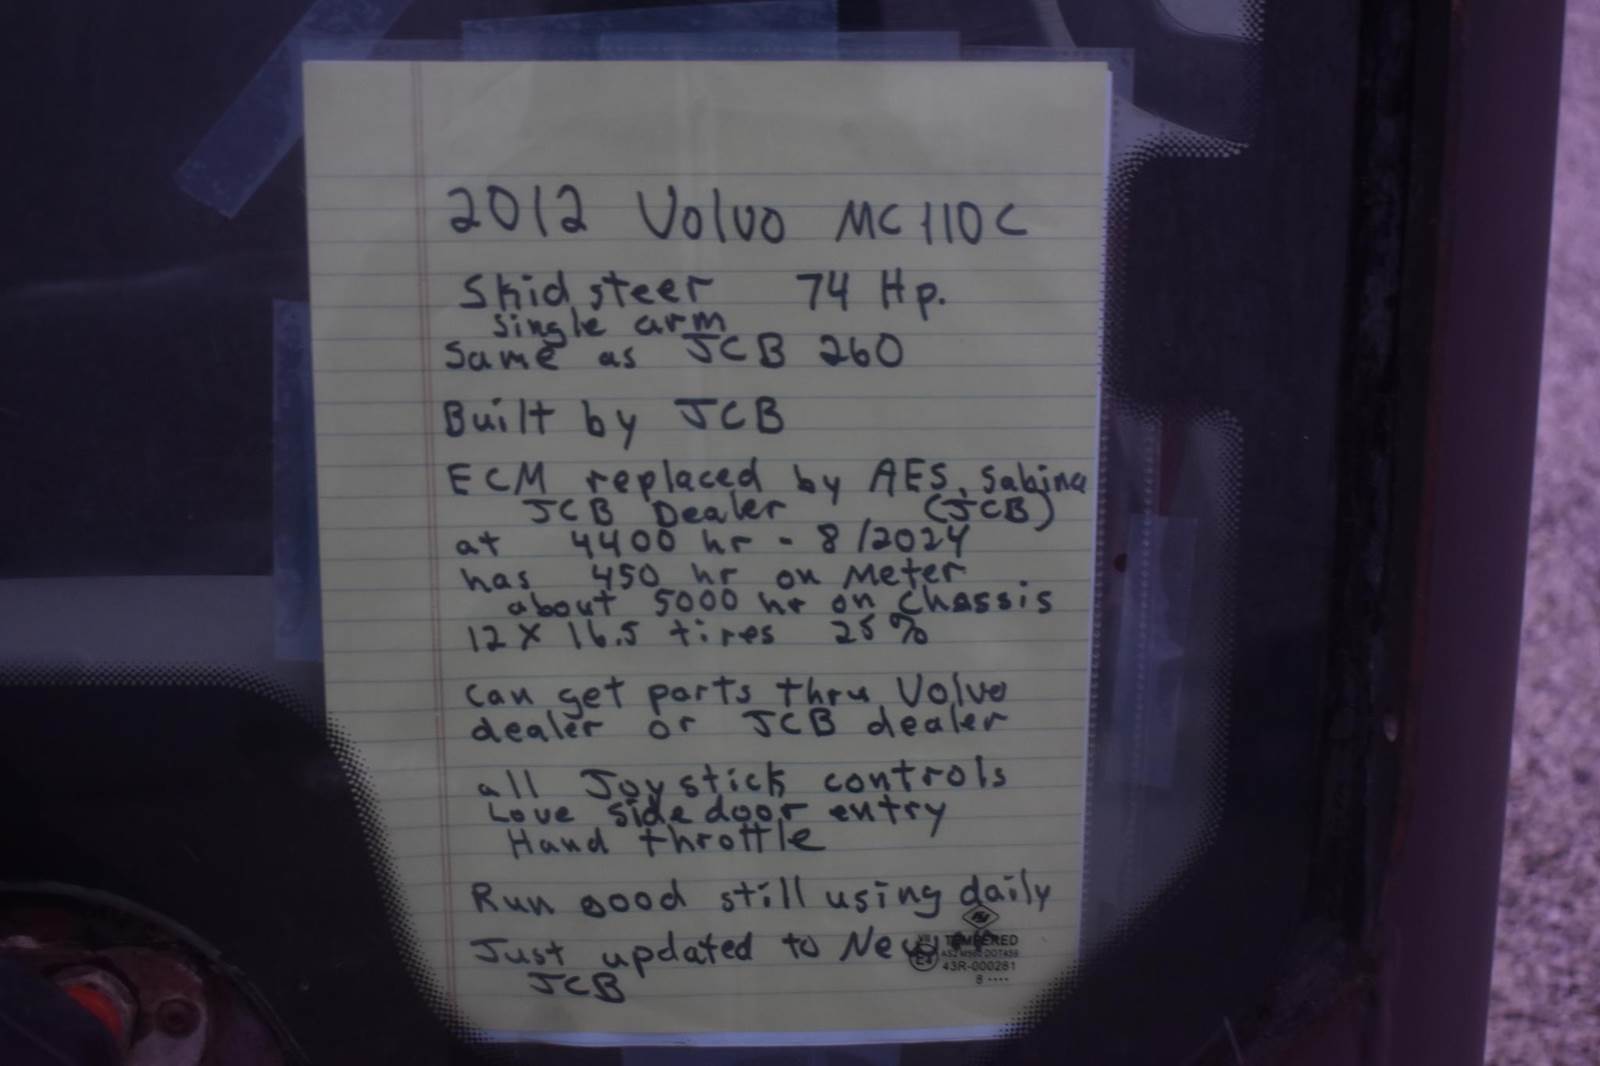 2012 Volvo MC110C
Skid steer 74 Hp.
single arm
Same as JCB 260
Built by JCB
ECM replaced by AES, Sabina
JCB Dealer (JCB)
at 4400 hr - 8/2024
has 450 hr on Meter
about 5000 hr on chassis
12 x 16.5 tires 25%
can get parts thru Volvo
dealer or JCB dealer
all Joystick controls
Love side door entry
Hand throttle
Run good still using daily
Just updated to Newer
JCB
TEMPERED
43R-000261